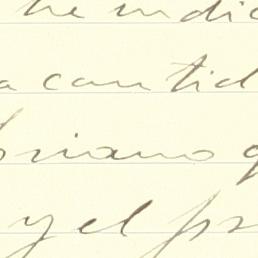 he indic
a cantid
briano q
y el pr